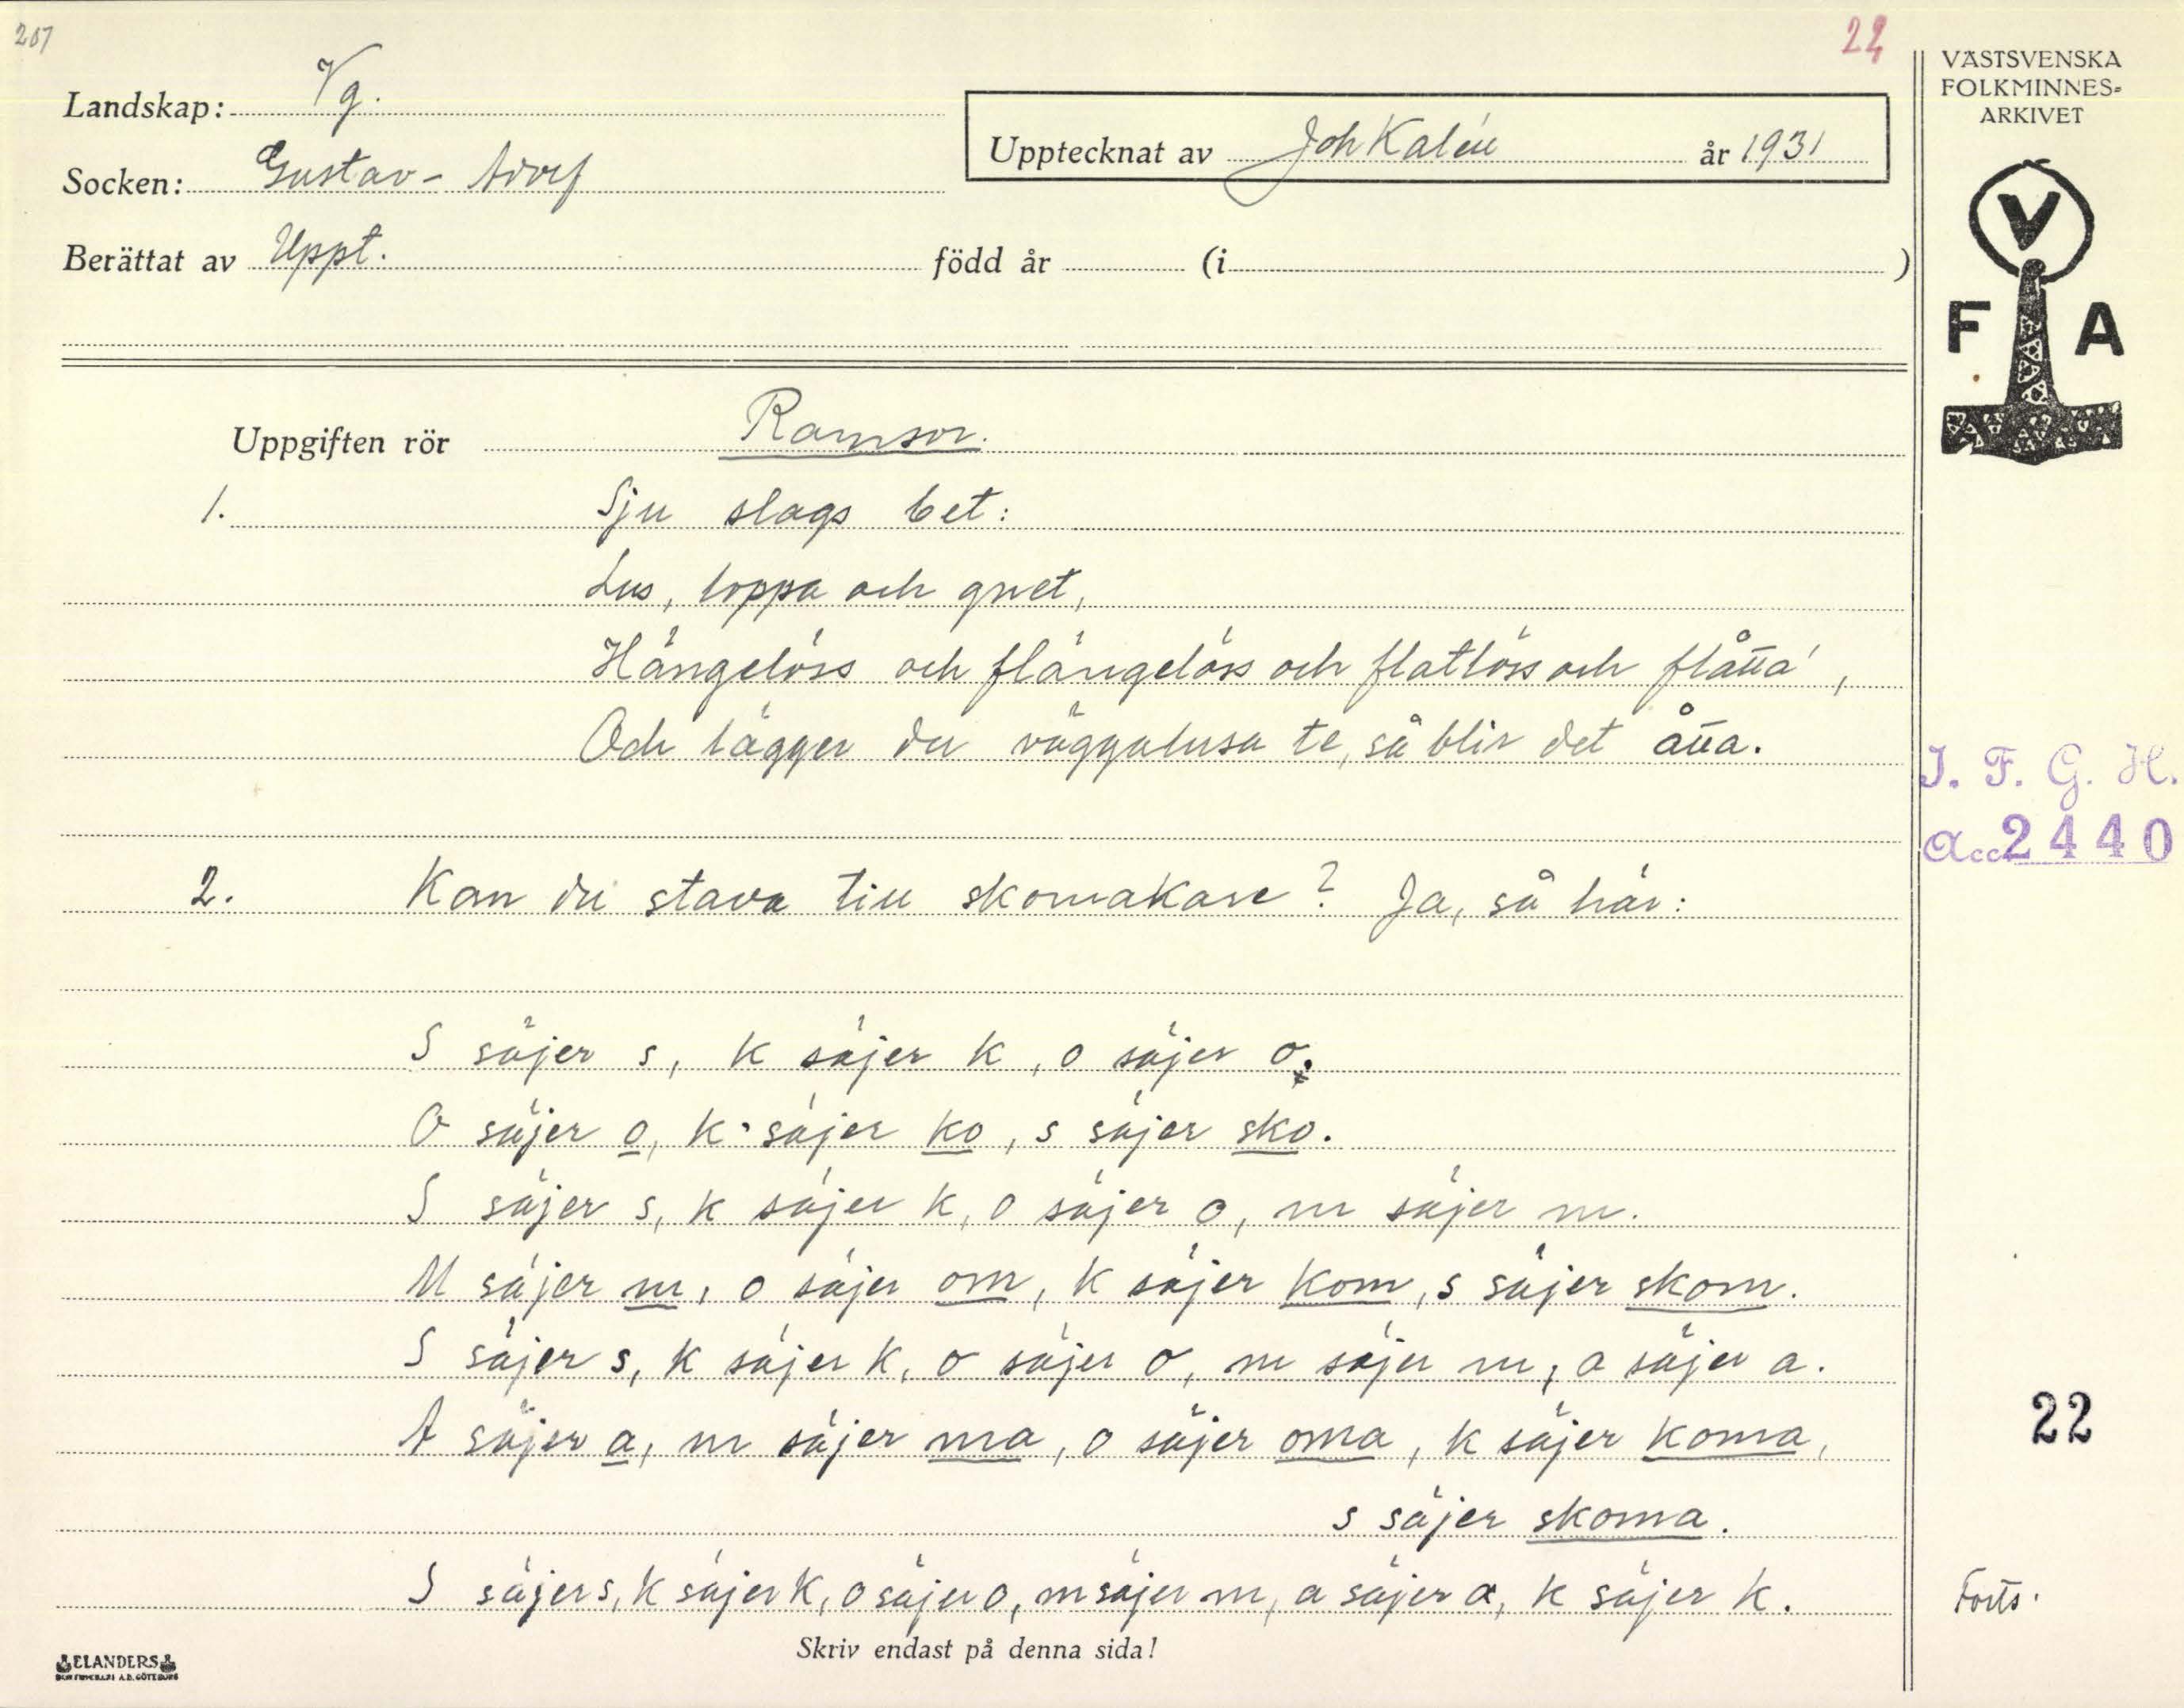 207
22
Landskap: Vg.
Socken: Gustav-Adolf
Upptecknat av Joh Kalén år 1931
Berättat av Uppt. född år (i )
VÄSTSVENSKA
FOLKMINNES-
ARKIVET
V
F A
Uppgiften rör Ramsor.
1. Sju slags bet:
Lus, loppa och gnet,
Hängelöss och flängelöss och flatlöss och flåtta,
Och lägger du väggalusa te, så blir det åtta.
I. F. G. H.
Acc 2440
2. Kan du stava till skomakare? Ja, så här:
S säjer s, k säjer k, o säjer o.
O säjer o, k säjer ko, s säjer sko.
S säjer s, k säjer k, o säjer o, m säjer m.
M säjer m, o säjer om, k säjer kom, s säjer skom.
S säjer s, k säjer k, o säjer o, m säjer m, a säjer a.
A säjer a, m säjer ma, o säjer oma, k säjer koma,
s säjer skoma.
22
S säjer s, k säjer k, o säjer o, m säjer m, a säjer a, k säjer k.
Forts.
Skriv endast på denna sida!
ELANDERS